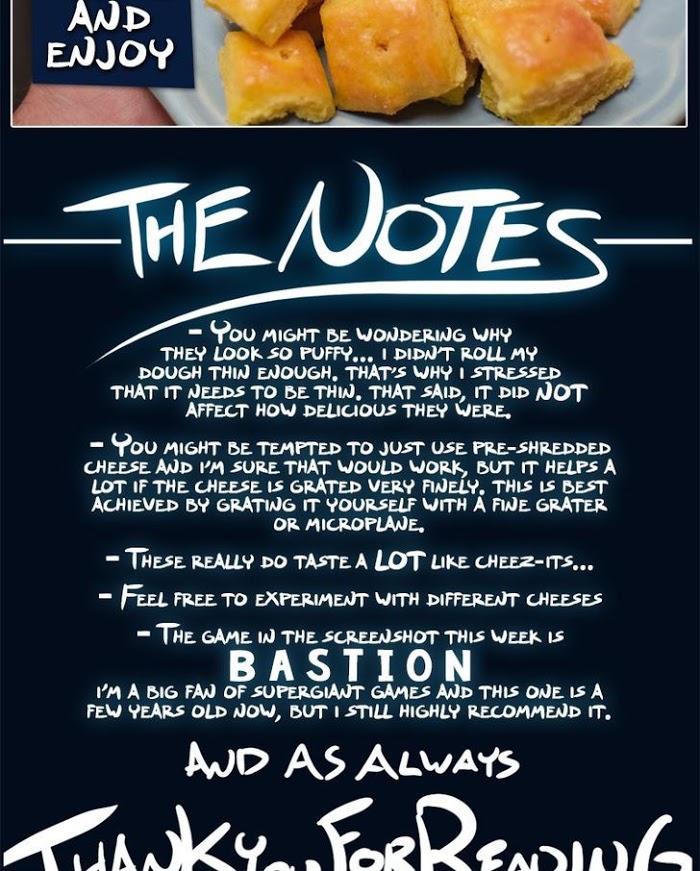 AND
ENJOY
THE NOTES
- YOU MIGHT BE WONDERING WHY
THEY LOOK SO PUFFY... I DIDN'T ROLL MY
DOUGH THIN ENOUGH. THAT'S WHY I STRESSED
THAT IT NEEDS TO BE THIN. THAT SAID, IT DID NOT
AFFECT HOW DELICIOUS THEY WERE.
- YOU MIGHT BE TEMPTED TO JUST USE PRE-SHREDDED
CHEESE AND I'M SURE THAT WOULD WORK, BUT IT HELPS A
LOT IF THE CHEESE IS GRATED VERY FINELY. THIS IS BEST
ACHIEVED BY GRATING IT YOURSELF WITH A FINE GRATER
OR MICROPLANE.
- THESE REALLY DO TASTE A LOT LIKE CHEEZ-ITS...
- FEEL FREE TO EXPERIMENT WITH DIFFERENT CHEESES
- THE GAME IN THE SCREENSHOT THIS WEEK IS
BASTION
I'M A BIG FAN OF SUPERGIANT GAMES AND THIS ONE IS A
FEW YEARS OLD NOW, BUT I STILL HIGHLY RECOMMEND IT.
AND AS ALWAYS
THANK YOU FOR READING